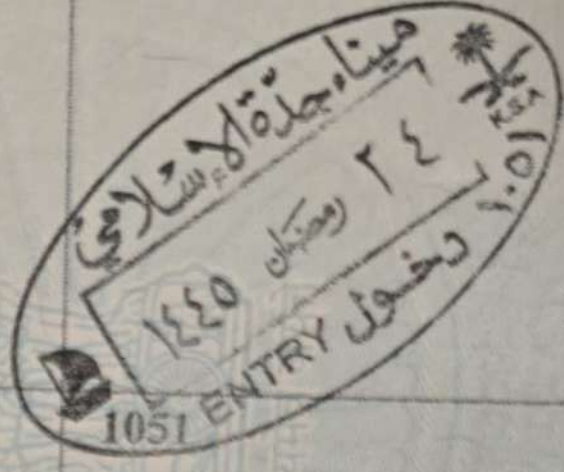 ميناء جدة الإسلامي
KSA
١٠٥١
٢٤ رمضان ١٤٤٥
دخول ENTRY
1051